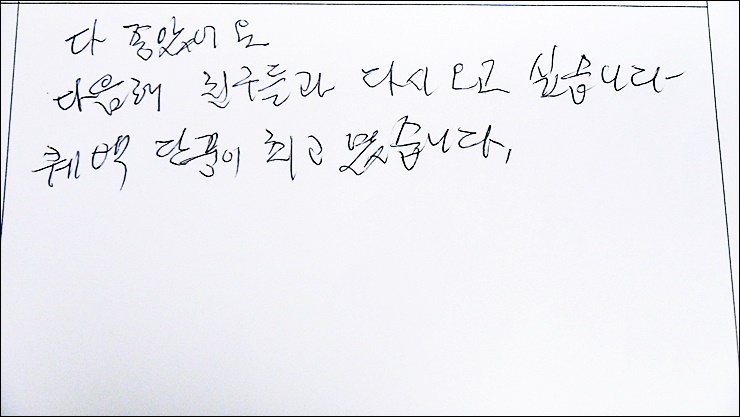 다 좋았어요
다음해 친구들과 다시 오고 싶습니다
퀘백 단풍이 최고 였습니다,